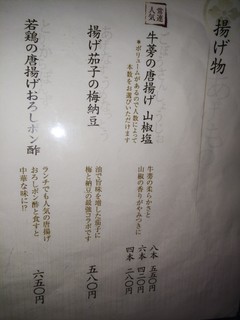 揚げ物
常連人気
牛蒡の唐揚げ 山椒塩
＊ボリュームがあるので人数によって
本数をお選びいただけます
牛蒡の柔らかさと
山椒の香りがやみつきに
八本 五五〇円
六本 四二〇円
四本 二八〇円
揚げ茄子の梅納豆
油で旨味を増した茄子に
梅と納豆の最強コラボです
五八〇円
若鶏の唐揚げおろしポン酢
ランチでも人気の唐揚げ
おろしポン酢と食すと
中華な味に!?
六五〇円